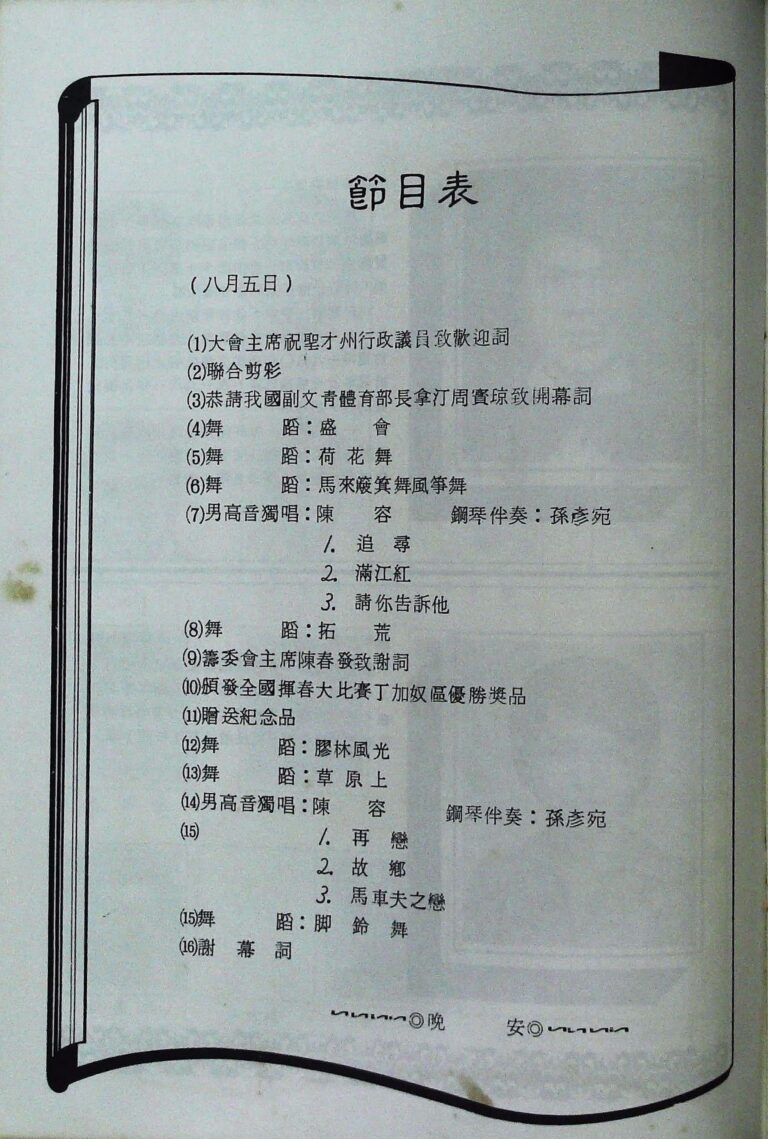 節目表
(八月五日)
⑴大會主席祝聖才州行政議員致歡迎詞
⑵聯合剪彩
⑶恭請我國副文靑體育部長拿汀周寶琼致開幕詞
⑷舞 蹈：盛 會
⑸舞 蹈：荷花舞
⑹舞 蹈：馬來簸箕舞風箏舞
⑺男高音獨唱：陳 容 鋼琴伴奏：孫彥宛
1. 追 尋
2. 滿江紅
3. 請你告訴他
⑻舞 蹈：拓 荒
⑼籌委會主席陳春發致謝詞
⑽頒發全國揮春大比賽丁加奴區優勝獎品
⑾贈送紀念品
⑿舞 蹈：膠林風光
⒀舞 蹈：草原上
⒁男高音獨唱：陳 容 鋼琴伴奏：孫彥宛
⒂ 1. 再 戀
2. 故 鄉
3. 馬車夫之戀
⒂舞 蹈：脚 鈴 舞
⒃謝 幕 詞
◎晚 安◎